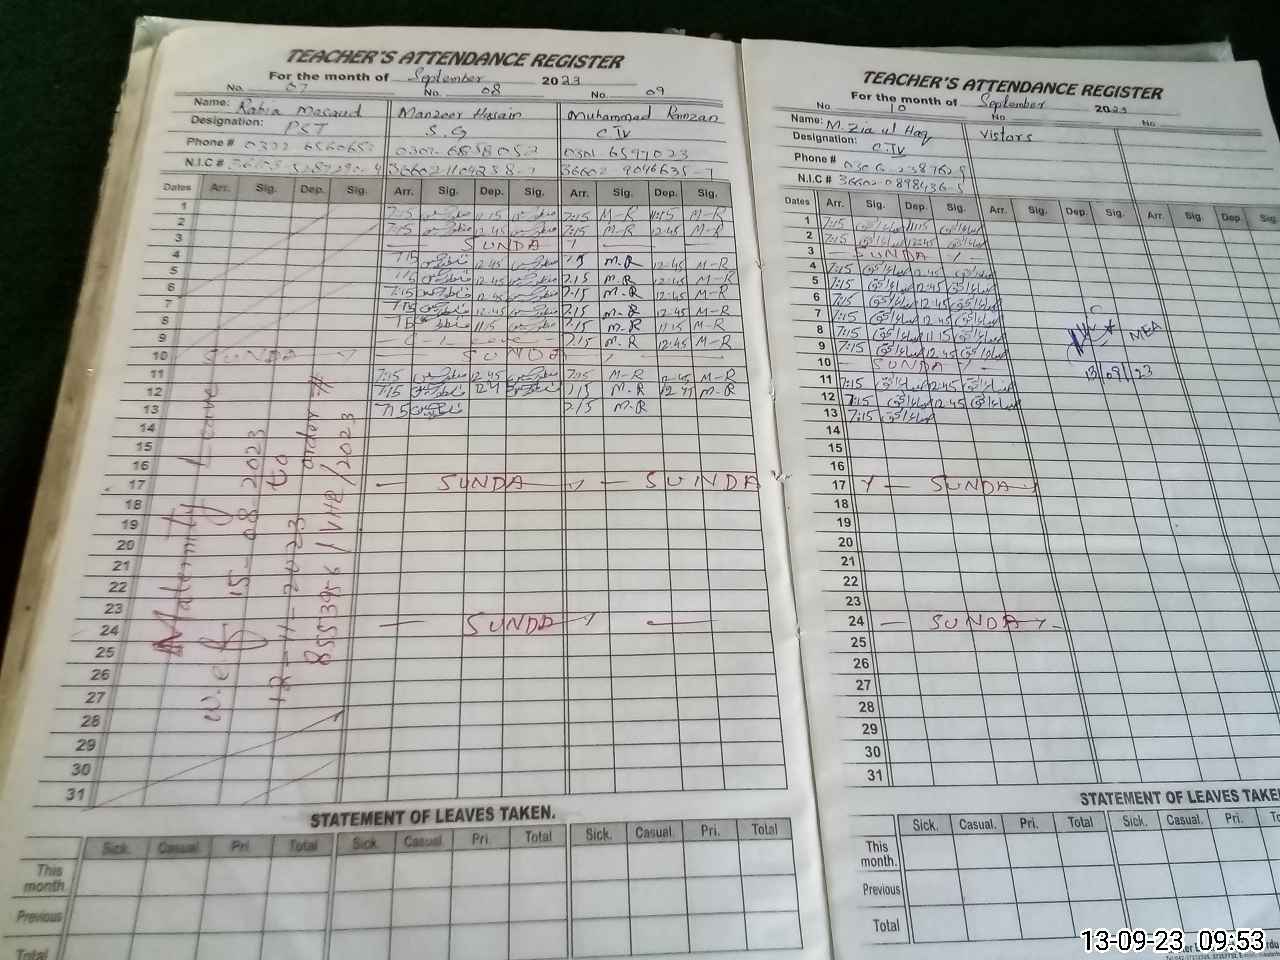 TEACHER'S ATTENDANCE REGISTER
For the month of September 2023
No. 07 No. 08 No. 09
Name: Rabia Masaud Manzoor Hussain Muhammad Ramzan
Designation: PST S.G CTV
Phone # 0302 6858052 0301 6597023
N.I.C # 36602 9046635-7
Dates Arr. Sig. Dep. Sig. Arr. Sig. Dep. Sig. Arr. Sig. Dep. Sig.
1 7:15 11:15 7:15 M-R 11:15 M-R
2 7:15 12:45 7:15 M-R 12:45 M-R
3 SUNDAY
4 7:15 12:45 7:15 M.R 12:45 M-R
5 7:15 12:45 7:15 M.R 12:45 M-R
6 7:15 12:45 7:15 M.R 12:45 M-R
7 7:15 12:45 7:15 M.R 12:45 M-R
8 7:15 11:15 7:15 M.R 11:15 M-R
9 7:15 M.R 12:45 M-R
10 SUNDAY SUNDAY
11 7:15 12:45 7:15 M-R 12:45 M-R
12 7:15 7:15 M.R M-R
13 7:15 7:15 M.R
14
15
16
17 SUNDAY SUNDA
18
19
20
21
22
23
24 SUNDAY
25
26
27
28
29
30
31
Maternity Leave
w.e.f 15-08 2023
to
12-11-2023
order #
8553956/VHR/2023
STATEMENT OF LEAVES TAKEN.
Sick. Casual. Pri. Total Sick. Casual. Pri. Total Sick. Casual. Pri. Total
This month.
Previous
Total
TEACHER'S ATTENDANCE REGISTER
For the month of September 2023
No. 10 No. No.
Name: M. Zia ul Haq Vistars
Designation: CTV
Phone #
N.I.C # 36602-0898436-5
Dates Arr. Sig. Dep. Sig. Arr. Sig. Dep. Sig. Arr. Sig. Dep. Sig.
1 7:15 11:15
2 7:15 12:45
3 SUNDAY
4 7:15 12:45
5 7:15 12:45
6 7:15 12:45
7 7:15 12:45
8 7:15 11:15
9 7:15 12:45
10 SUNDAY
11 7:15 12:45
12 7:15 12:45
13 7:15
MEA
13/09/23
14
15
16
17 Y SUNDAY
18
19
20
21
22
23
24 SUNDAY
25
26
27
28
29
30
31
STATEMENT OF LEAVES TAKE
Sick. Casual. Pri. Total Sick. Casual. Pri.
This month.
Previous
Total
13-09-23 09:53